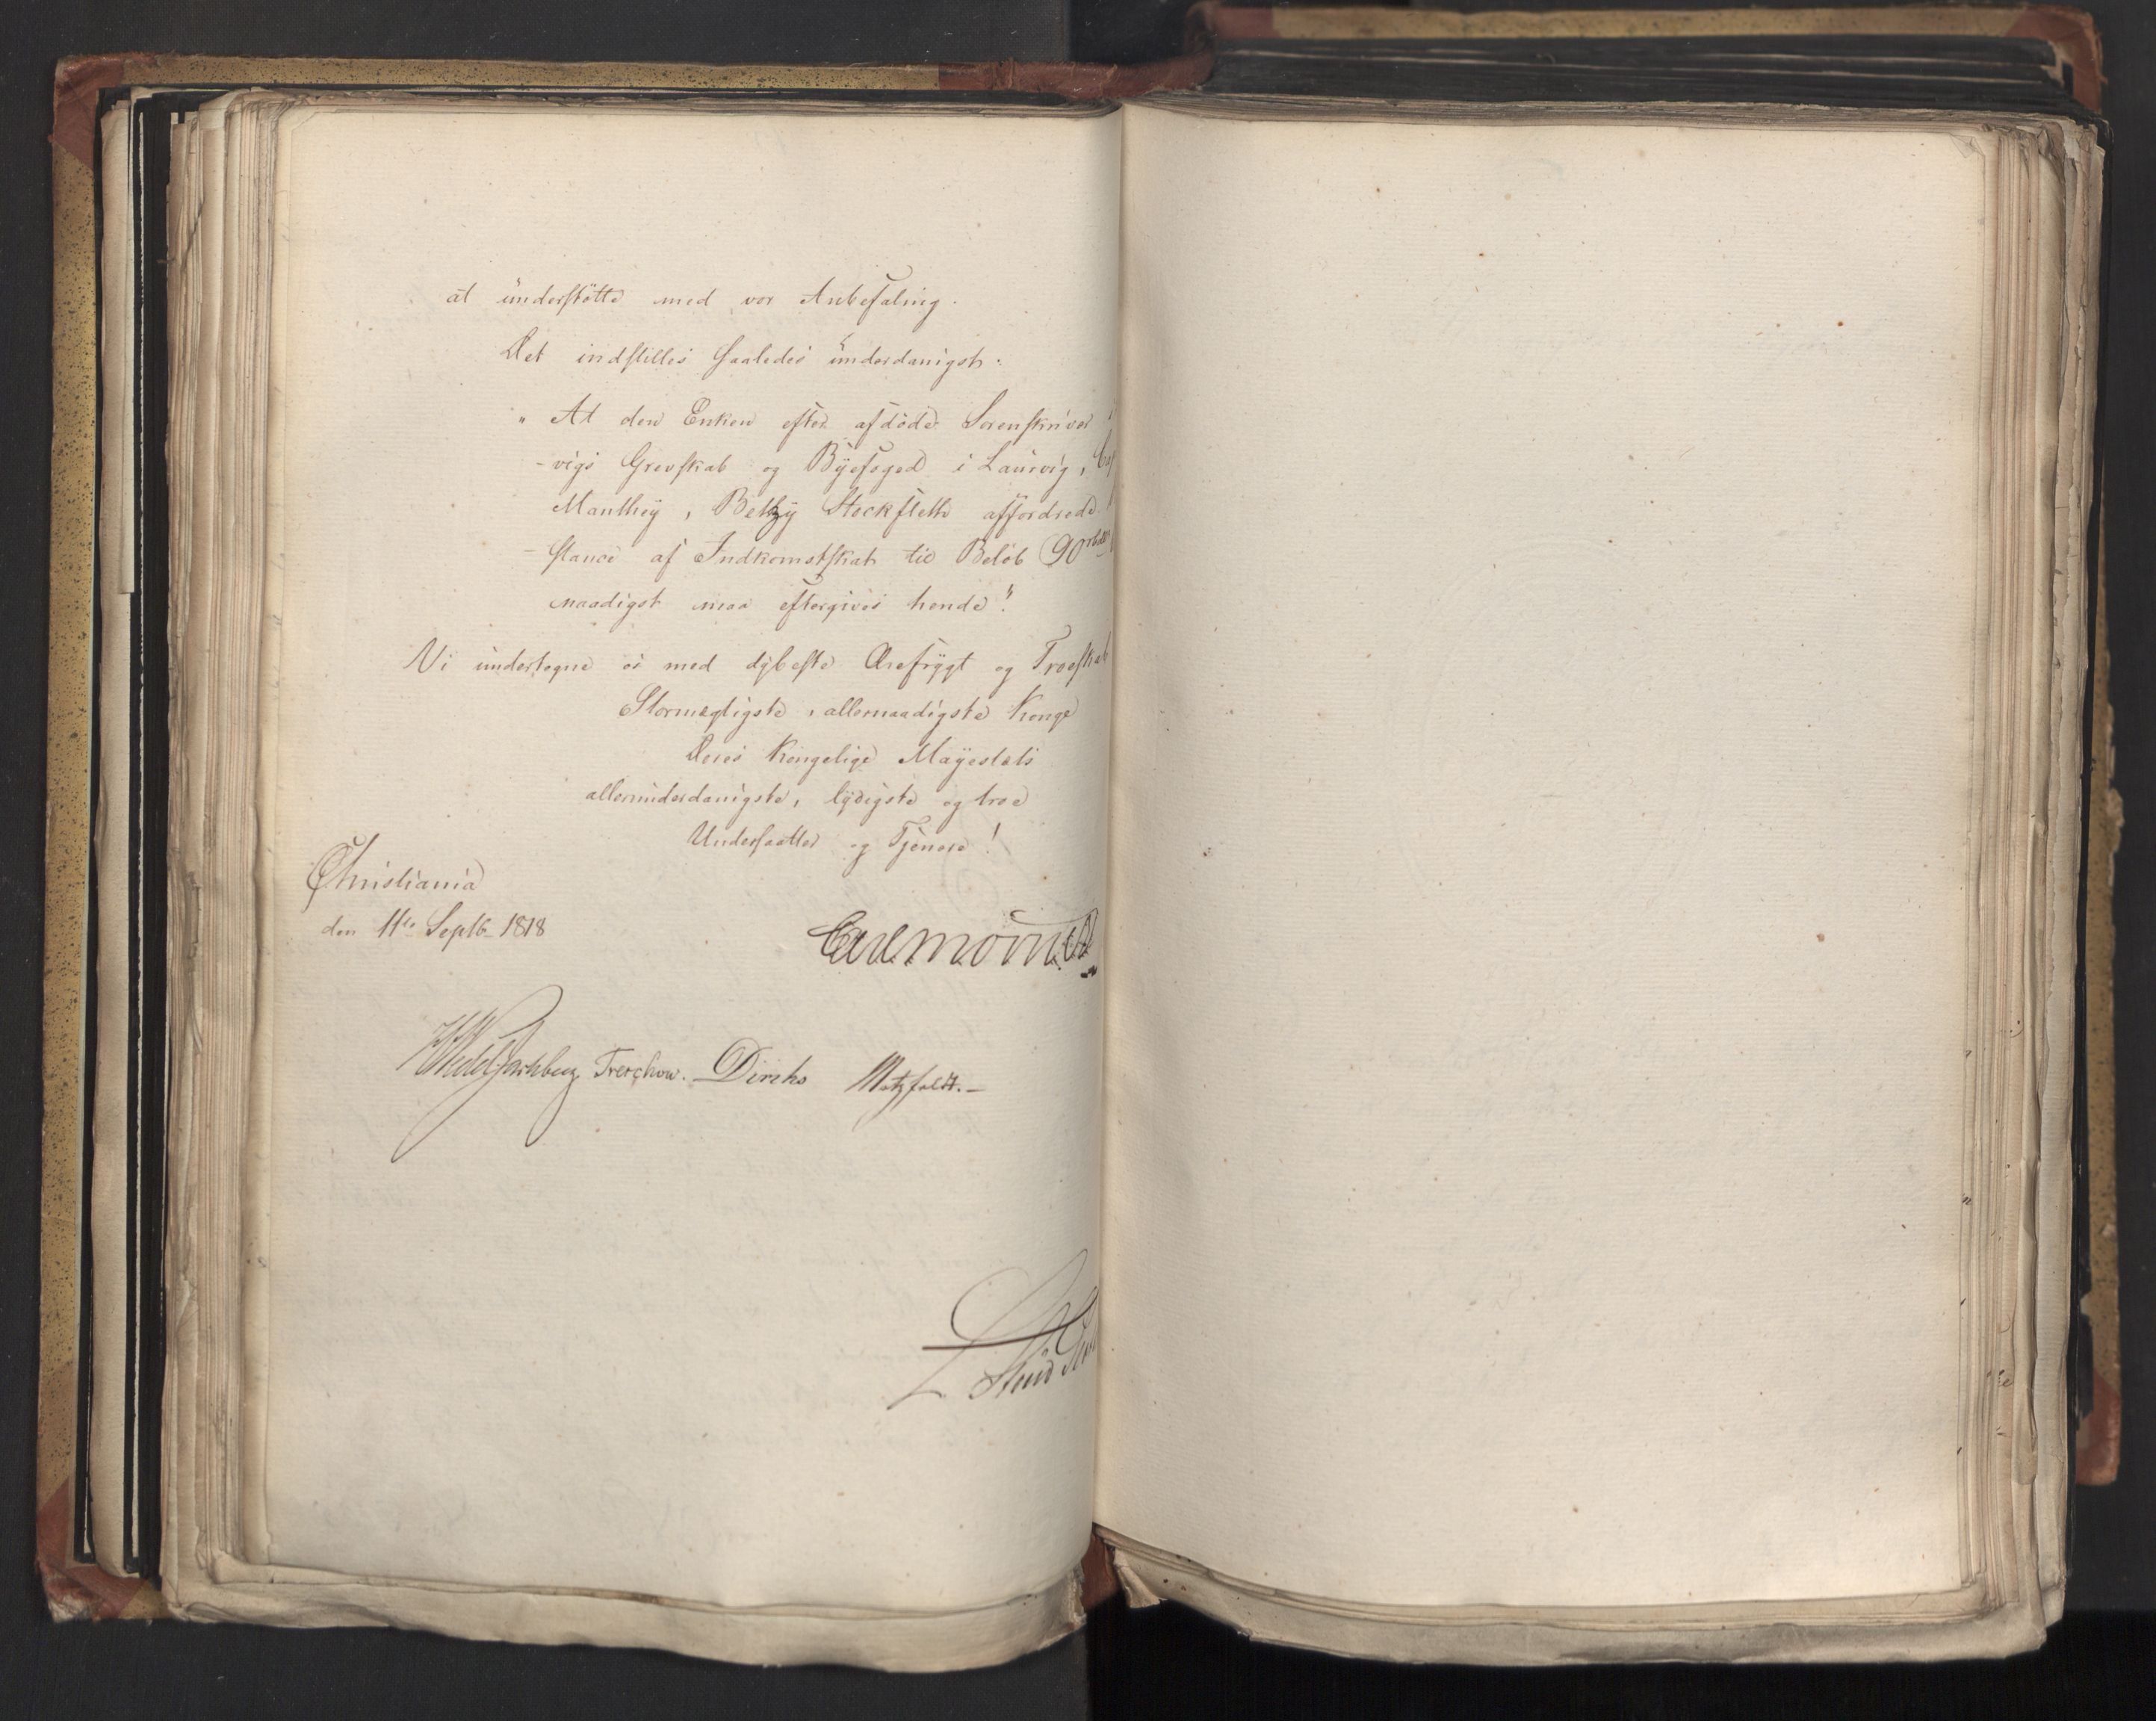 at understötte med vor Anbefaling.
Det indstilles saaledes underdanigst:
„ At den Enken efter afdöde Sorenskriver
-vigs Grevskab og Byefoged i Laurvig,
Manthey, Betzy Stockfleth affordrede
-stance af Indkomstskat til Beløb 90 rbdlr
naadigst maa eftergives hende".
Vi undertegne os med dybeste Ærefrygt og Troeskab
Stormægtigste, allernaadigste Konge
Deres Kongelige Mayestæts
allerunderdanigste, lydigste og troe
Undersaatter og Tjenere!
Christiania
den 11te Septb 1818
Carl Mörner
HWedelJarlsberg Treschow. Diriks Motzfeldt.-